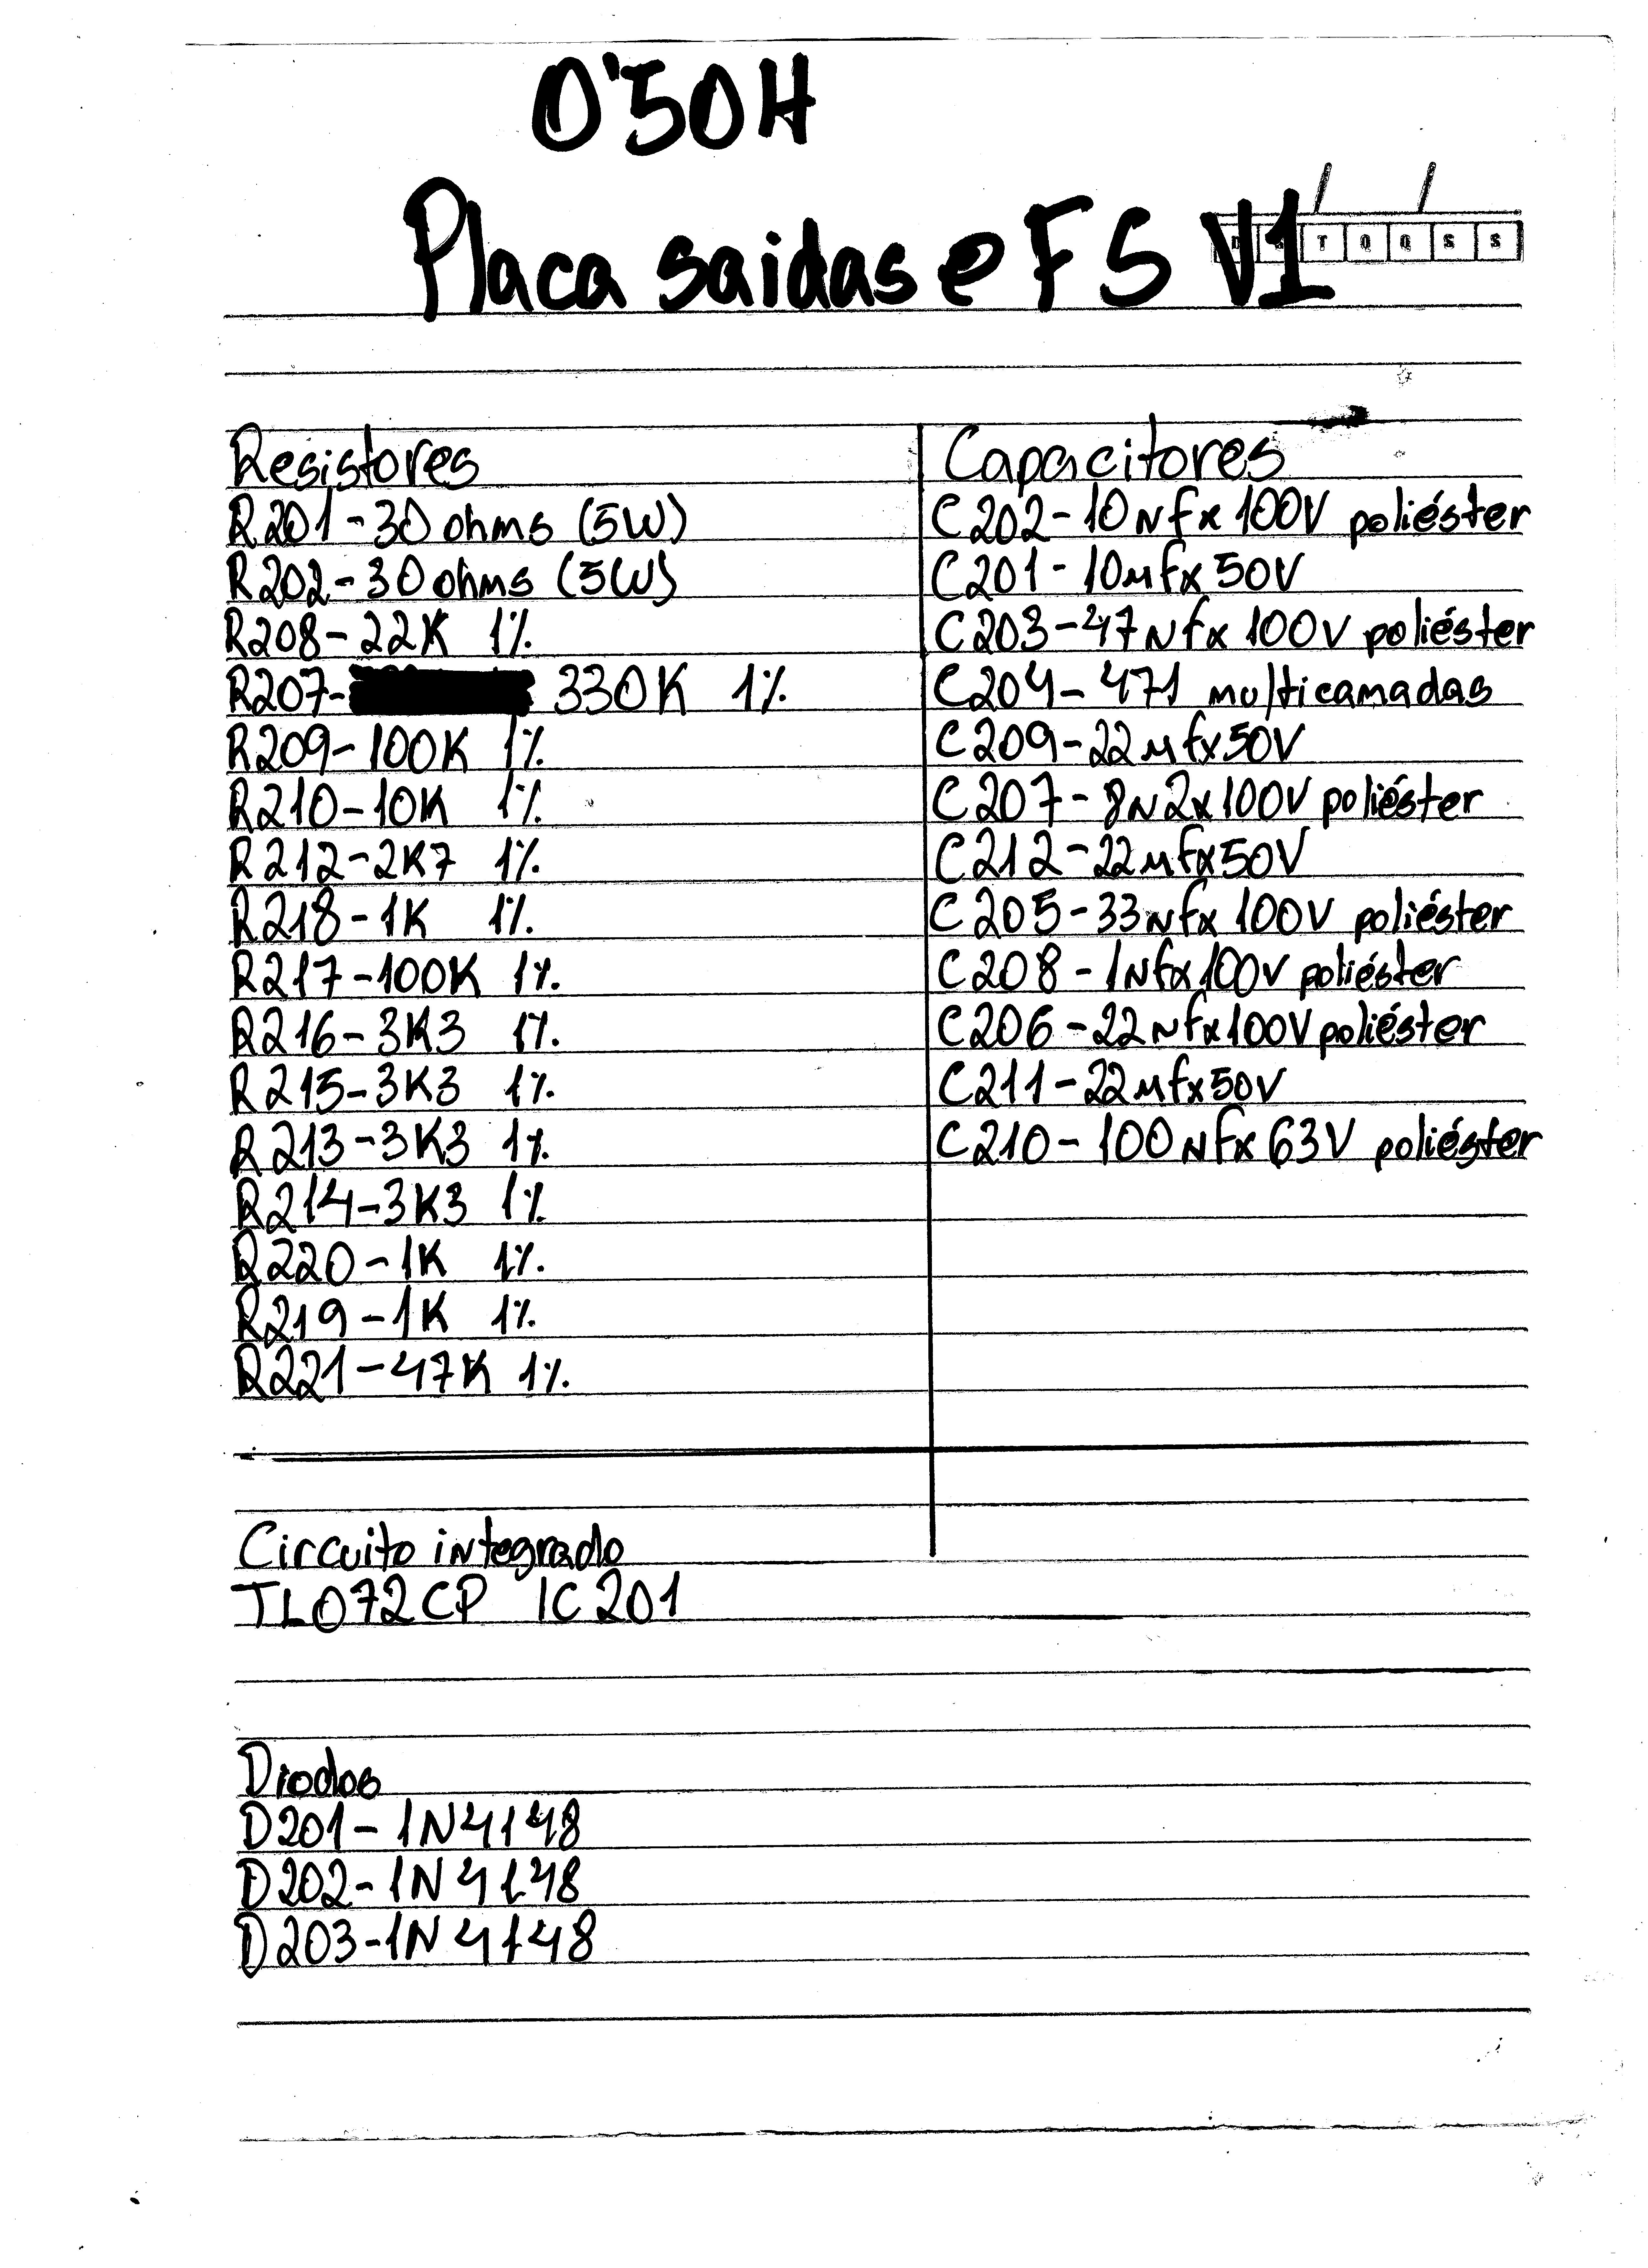 O'50H
Placa saidas e FS V1
T Q Q S S
Resistores
R201-30 ohms (5W)
R202-30 ohms (5W)
R208-22K 1%
R207- 330K 1%
R209-100K 1%
R210-10K 1%
R212-2K7 1%
R218-1K 1%
R217-100K 1%
R216-3K3 1%
R215-3K3 1%
R213-3K3 1%
R214-3K3 1%
R220-1K 1%
R219-1K 1%
R221-47K 1%
Capacitores
C202-10Nfx100V poliéster
C201-10µfx50V
C203-47Nfx100V poliéster
C204-471 multicamadas
C209-22µfx50V
C207-8N2x100V poliéster
C212-22µfx50V
C205-33Nfx100V poliéster
C208-1Nfx100V poliéster
C206-22Nfx100V poliéster
C211-22µfx50V
C210-100Nfx63V poliéster
Circuito integrado
TL072CP IC201
Diodos
D201-1N4148
D202-1N4148
D203-1N4148